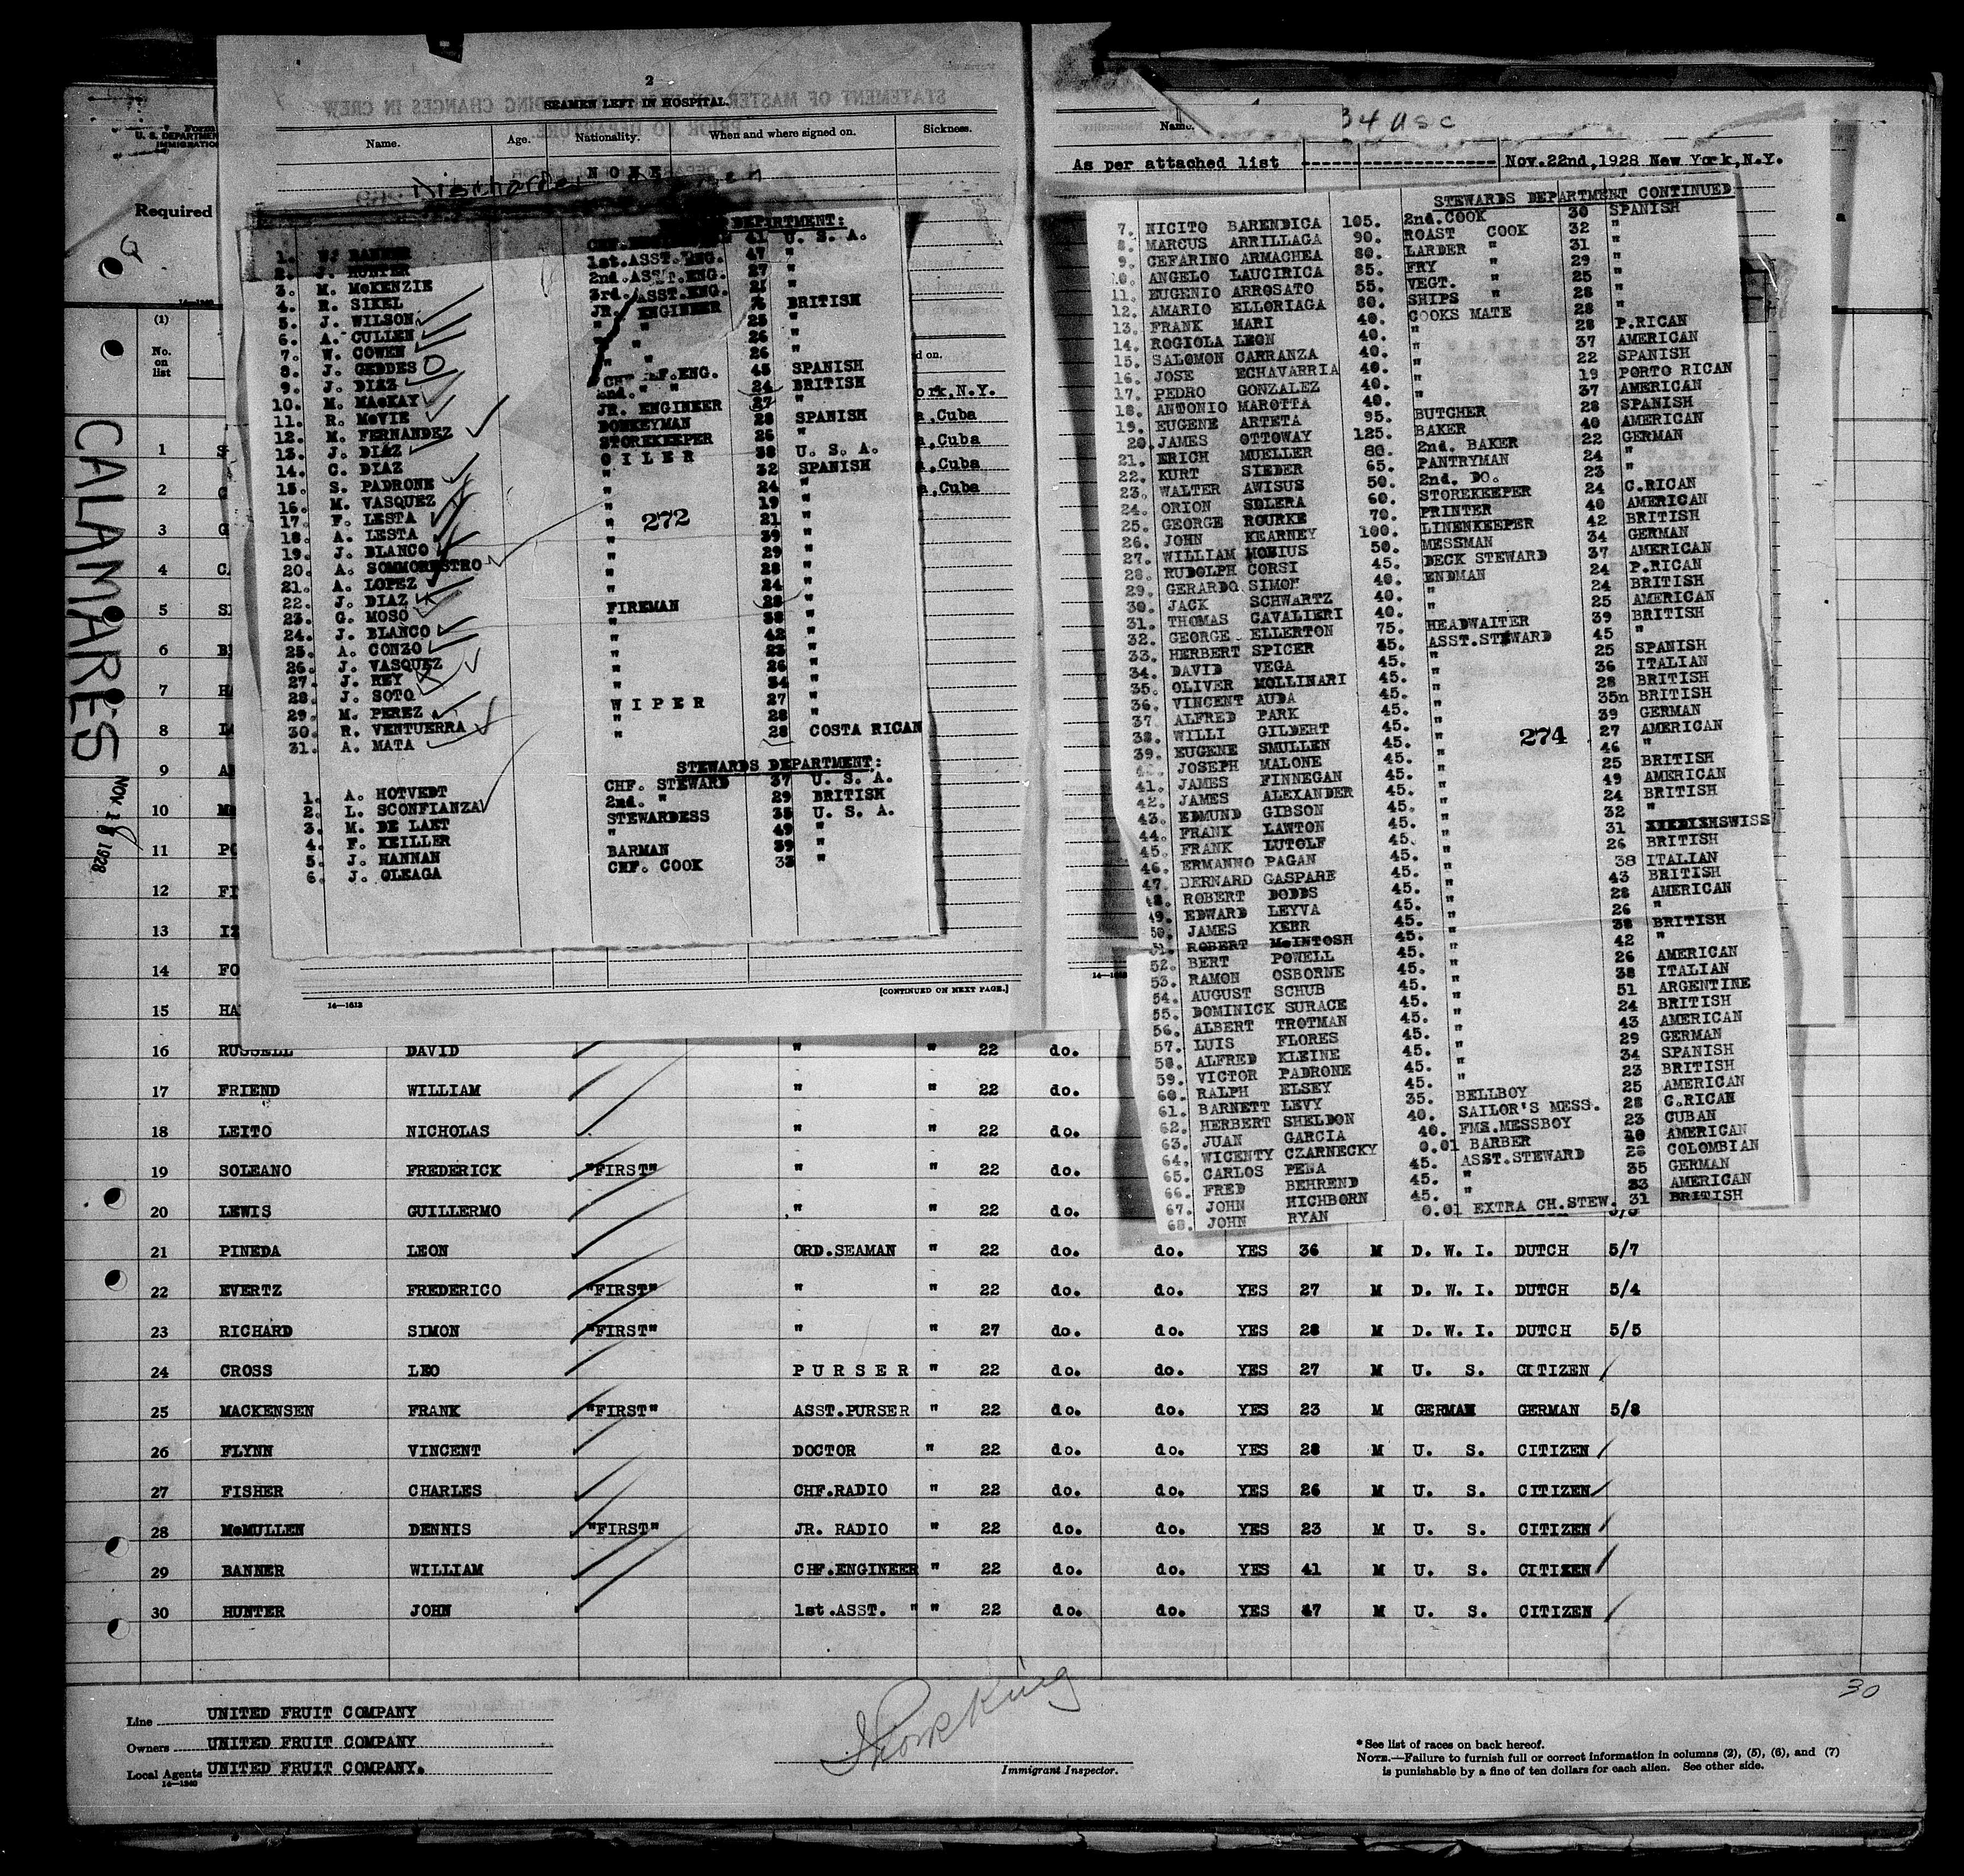 Form
U. S. DEPARTMEN
IMMIGRATION
Required
(1)
No.
on
list
CALAMARES
NOV 28 1928
2
SEAMEN LEFT IN HOSPITAL.
Name. Age. Nationality. When and where signed on. Sickness.
NONE
Discharded
DEPARTMENT:
1. W. BANNER 41 U. S. A.
2. J. HUNTER 1st.ASST.ENG. 47 "
3. M. McKENZIE 2nd.ASST.ENG. 27 "
4. R. SIKEL 3rd.ASST.ENG. 21 "
5. J. WILSON JR. ENGINEER BRITISH
6. A. CULLEN " " 25 "
7. W. COWEN " " 26 "
8. J. GEDDES " " 26 "
9. J. DIAZ CHF REF.ENG. 45 SPANISH
10. M. MacKAY 2nd. " " 24 BRITISH
11. R. McVIE JR. ENGINEER 27 "
12. M. FERNANDEZ DONKEYMAN 28 SPANISH
13. J. DIAZ STOREKEEPER 26 "
14. C. DIAZ O I L E R 38 U. S. A.
15. S. PADRONE " 32 SPANISH
16. M. VASQUEZ " 24 "
17. F. LESTA " 19 "
18. A. LESTA " 21 "
19. J. BLANCO " 39 "
20. A. SOMMORESTRO " 29 "
21. A. LOPEZ " 28 "
22. J. DIAZ " 24 "
23. G. MOSO FIREMAN 28 "
24. J. BLANCO " 38 "
25. A. CONZO " 42 "
26. J. VASQUEZ " 23 "
27. J. REY " 26 "
28. J. SOTO " 34 "
29. M. PEREZ W I P E R 27 "
30. R. VENTUERRA " 28 "
31. A. MATA " 28 COSTA RICAN
272
STEWARDS DEPARTMENT:
1. A. HOTVEDT CHF. STEWARD 37 U. S. A.
2. L. SCONFIANZA 2nd. " 29 BRITISH
3. M. DE LAET STEWARDESS 35 U. S. A.
4. F. KEILLER " 49 "
5. J. HANNAN BARMAN 39 "
6. J. OLEAGA CHF. COOK 38 "
14—1613
[CONTINUED ON NEXT PAGE.]
d on.
ork,N.Y.
a,Cuba
a,Cuba
a,Cuba
a,Cuba
Name.
34 USC
As per attached list Nov.22nd,1928 New York,N.Y.
STEWARDS DEPARTMENT CONTINUED
7. NICITO BARENDICA 105. 2nd.COOK 30 SPANISH
8. MARCUS ARRILLAGA 90. ROAST COOK 32 "
9. CEFARINO ARMACHEA 80. LARDER " 31 "
10. ANGELO LAUCIRICA 85. FRY " 29 "
11. EUGENIO ARROSATO 55. VEGT. " 25 "
12. AMARIO ELLORIAGA 80. SHIPS " 28 "
13. FRANK MARI 40. COOKS MATE 28 "
14. ROGIOLA LEON 40. " 28 P.RICAN
15. SALOMON CARRANZA 40. " 37 AMERICAN
16. JOSE ECHAVARRIA 40. " 22 SPANISH
17. PEDRO GONZALEZ 40. " 19 PORTO RICAN
18. ANTONIO MAROTTA 40. " 37 AMERICAN
19. EUGENE ARTETA 95. BUTCHER 28 SPANISH
20. JAMES OTTOWAY 125. BAKER 40 AMERICAN
21. ERICH MUELLER 80. 2nd. BAKER 22 GERMAN
22. KURT SIEDER 65. PANTRYMAN 24 "
23. WALTER AWISUS 50. 2nd. DO. 23 "
24. ORION SOLERA 60. STOREKEEPER 24 C.RICAN
25. GEORGE ROURKE 70. PRINTER 40 AMERICAN
26. JOHN KEARNEY 100. LINENKEEPER 42 BRITISH
27. WILLIAM MOBIUS 50. MESSMAN 34 GERMAN
28. RUDOLPH CORSI 45. DECK STEWARD 37 AMERICAN
29. GERARDO SIMON 40. ENDMAN 24 P.RICAN
30. JACK SCHWARTZ 40. " 24 BRITISH
31. THOMAS CAVALIERI 40. " 25 AMERICAN
32. GEORGE ELLERTON 75. HEADWAITER 39 BRITISH
33. HERBERT SPICER 85. ASST.STEWARD 45 "
34. DAVID VEGA 45. " 25 SPANISH
35. OLIVER MOLLINARI 45. " 36 ITALIAN
36. VINCENT AUDA 45. " 28 BRITISH
37. ALFRED PARK 45. " 35n BRITISH
38. WILLI GILDERT 45. " 39 GERMAN
39. EUGENE SMULLEN 45. " 27 AMERICAN
JOSEPH MALONE 45. " 46 "
41. JAMES FINNEGAN 45. " 25 BRITISH
42. JAMES ALEXANDER 45. " 49 AMERICAN
43. EDMUND GIBSON 45. " 24 BRITISH
44. FRANK LAWTON 45. " 32 "
45. FRANK LUTOLF 45. " 31 SWISS
46. ERMANNO PAGAN 45. " 26 BRITISH
47. BERNARD GASPARE 45. " 38 ITALIAN
48. ROBERT DODDS 45. " 43 BRITISH
49. EDWARD LEYVA 45. " 28 AMERICAN
50. JAMES KERR 45. " 26 "
51. ROBERT McINTOSH 45. " 38 BRITISH
52. BERT POWELL 45. " 42 "
53. RAMON OSBORNE 45. " 26 AMERICAN
54. AUGUST SCHUB 45. " 38 ITALIAN
55. DOMINICK SURACE 45. " 51 ARGENTINE
56. ALBERT TROTMAN 45. " 24 BRITISH
57. LUIS FLORES 45. " 43 AMERICAN
58. ALFRED KLEINE 45. " 29 GERMAN
59. VICTOR PADRONE 45. " 34 SPANISH
60. RALPH ELSEY 45. " 23 BRITISH
61. BARNETT LEVY 35. BELLBOY 25 AMERICAN
62. HERBERT SHELDON 40. SAILOR'S MESS. 28 C.RICAN
63. JUAN GARCIA 40. FMS.MESSBOY 23 CUBAN
64. WICENTY CZARNECKY 0.01 BARBER AMERICAN
65. CARLOS PENA 45. ASST.STEWARD 28 COLOMBIAN
66. FRED BEHREND 45. " 35 GERMAN
67. JOHN HICHBORN 45. " 33 AMERICAN
68. JOHN RYAN 0.01 EXTRA CH.STEW. 31 BRITISH
274
1 S
2
3 G
4 CA
5
6
7 HA
8
9
10
11 PO
12 FI
13
14 FO
15 HA
16 RUSSELL DAVID " " 22 do.
17 FRIEND WILLIAM " " 22 do.
18 LEITO NICHOLAS " " 22 do.
19 SOLEANO FREDERICK "FIRST" " " 22 do.
20 LEWIS GUILLERMO " " 22 do.
21 PINEDA LEON ORD.SEAMAN " 22 do. do. YES 36 M D. W. I. DUTCH 5/7
22 EVERTZ FREDERICO "FIRST" " " 22 do. do. YES 27 M D. W. I. DUTCH 5/4
23 RICHARD SIMON "FIRST" " " 27 do. do. YES 28 M D. W. I. DUTCH 5/5
24 CROSS LEO P U R S E R " 22 do. do. YES 27 M U. S. CITIZEN
25 MACKENSEN FRANK "FIRST" ASST.PURSER " 22 do. do. YES 23 M GERMAN GERMAN 5/8
26 FLYNN VINCENT DOCTOR " 22 do. do. YES 28 M U. S. CITIZEN
27 FISHER CHARLES CHF.RADIO " 22 do. do. YES 26 M U. S. CITIZEN
28 McMULLEN DENNIS "FIRST" JR. RADIO " 22 do. do. YES 23 M U. S. CITIZEN
29 BANNER WILLIAM CHF.ENGINEER " 22 do. do. YES 41 M U. S. CITIZEN
30 HUNTER JOHN 1st.ASST. " " 22 do. do. YES 47 M U. S. CITIZEN
30
Line UNITED FRUIT COMPANY
Owners UNITED FRUIT COMPANY
Local Agents UNITED FRUIT COMPANY.
14—1240
Immigrant Inspector.
*See list of races on back hereof.
NOTE.—Failure to furnish full or correct information in columns (2), (5), (6), and (7)
is punishable by a fine of ten dollars for each alien. See other side.